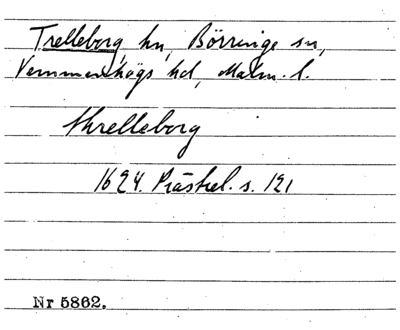 Trelleborg hn, Börringe sn,
Vemmenhögs hd, Malm. l.
threlleborg
1624. Prästrel. s. 121
Nr 5862.